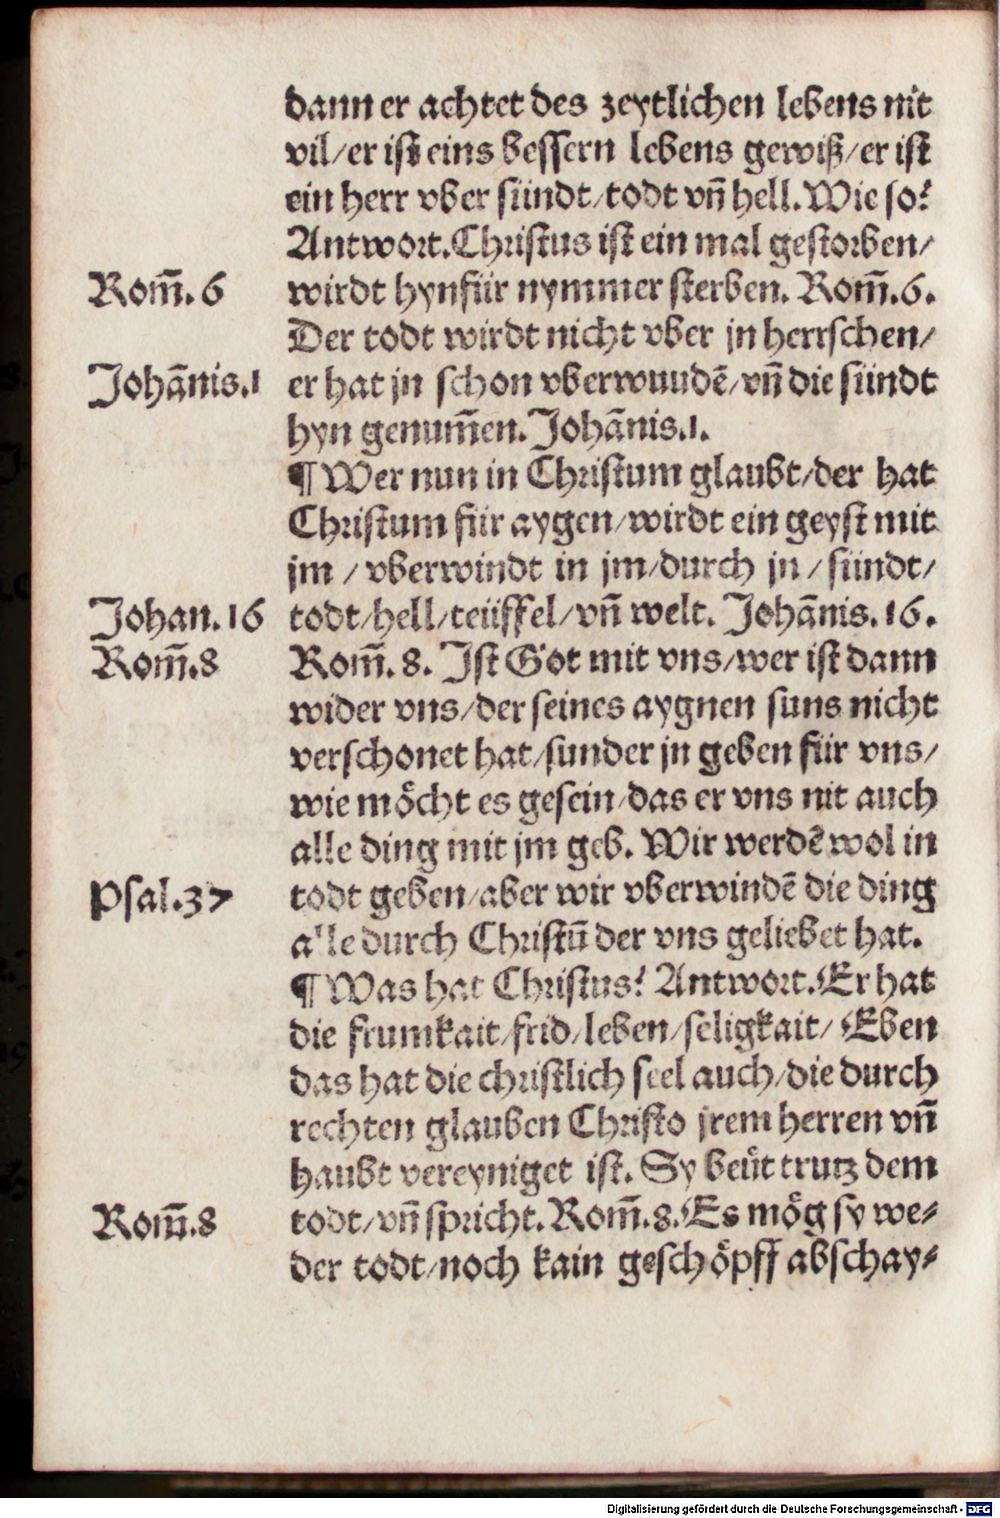 dann er achtet des zeytlichen lebens nit
vil/er ist eins bessern lebens gewiß/er ist
ein herr vber sündt/todt vñ hell. Wie so?
Antwort. Christus ist ein mal gestorben/
Rom̃. 6 wirdt hynfür nymmer sterben. Rom̃. 6.
Der todt wirdt nicht vber jn herrschen/
Johãnis. 1 er hat jn schon vberwuudẽ/vñ die sündt
hyn genum̃en. Johãnis. 1.
¶ Wer nun in Christum glaubt/der hat
Christum für aygen/wirdt ein geyst mit
jm / vberwindt in jm/durch jn / sündt/
Johan. 16 todt/hell/teüffel/vñ welt. Johãnis. 16.
Rom̃. 8 Rom̃. 8. Ist Got mit vns/wer ist dann
wider vns/der seines aygnen suns nicht
verschonet hat/sunder jn geben für vns/
wie möcht es gesein/das er vns nit auch
alle ding mit jm geb. Wir werdẽ wol in
Psal. 37 todt geben/aber wir vberwindẽ die ding
alle durch Christũ der vns geliebet hat.
¶ Was hat Christus? Antwort. Er hat
die frumkait/frid/leben/seligkait/ Eben
das hat die christlich seel auch/die durch
rechten glauben Christo jrem herren vñ
haubt vereyniget ist. Sy beüt trutz dem
Rom̃. 8 todt/vñ spricht. Rom̃. 8. Es mög sy we⸗
der todt/noch kain geschöpff abschay⸗
Digitalisierung gefördert durch die Deutsche Forschungsgemeinschaft - DFG